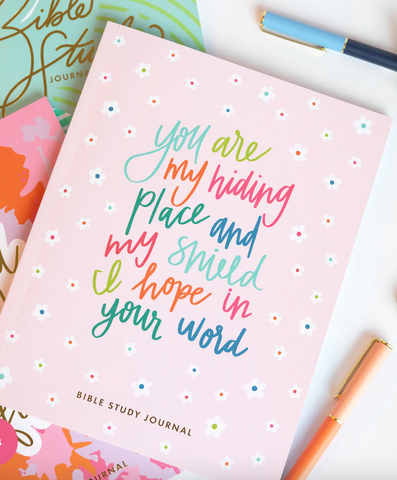 Bible
Study
JOURNAL
you are
my hiding
place and
my shield
I hope in
your word
BIBLE STUDY JOURNAL
JOURNAL